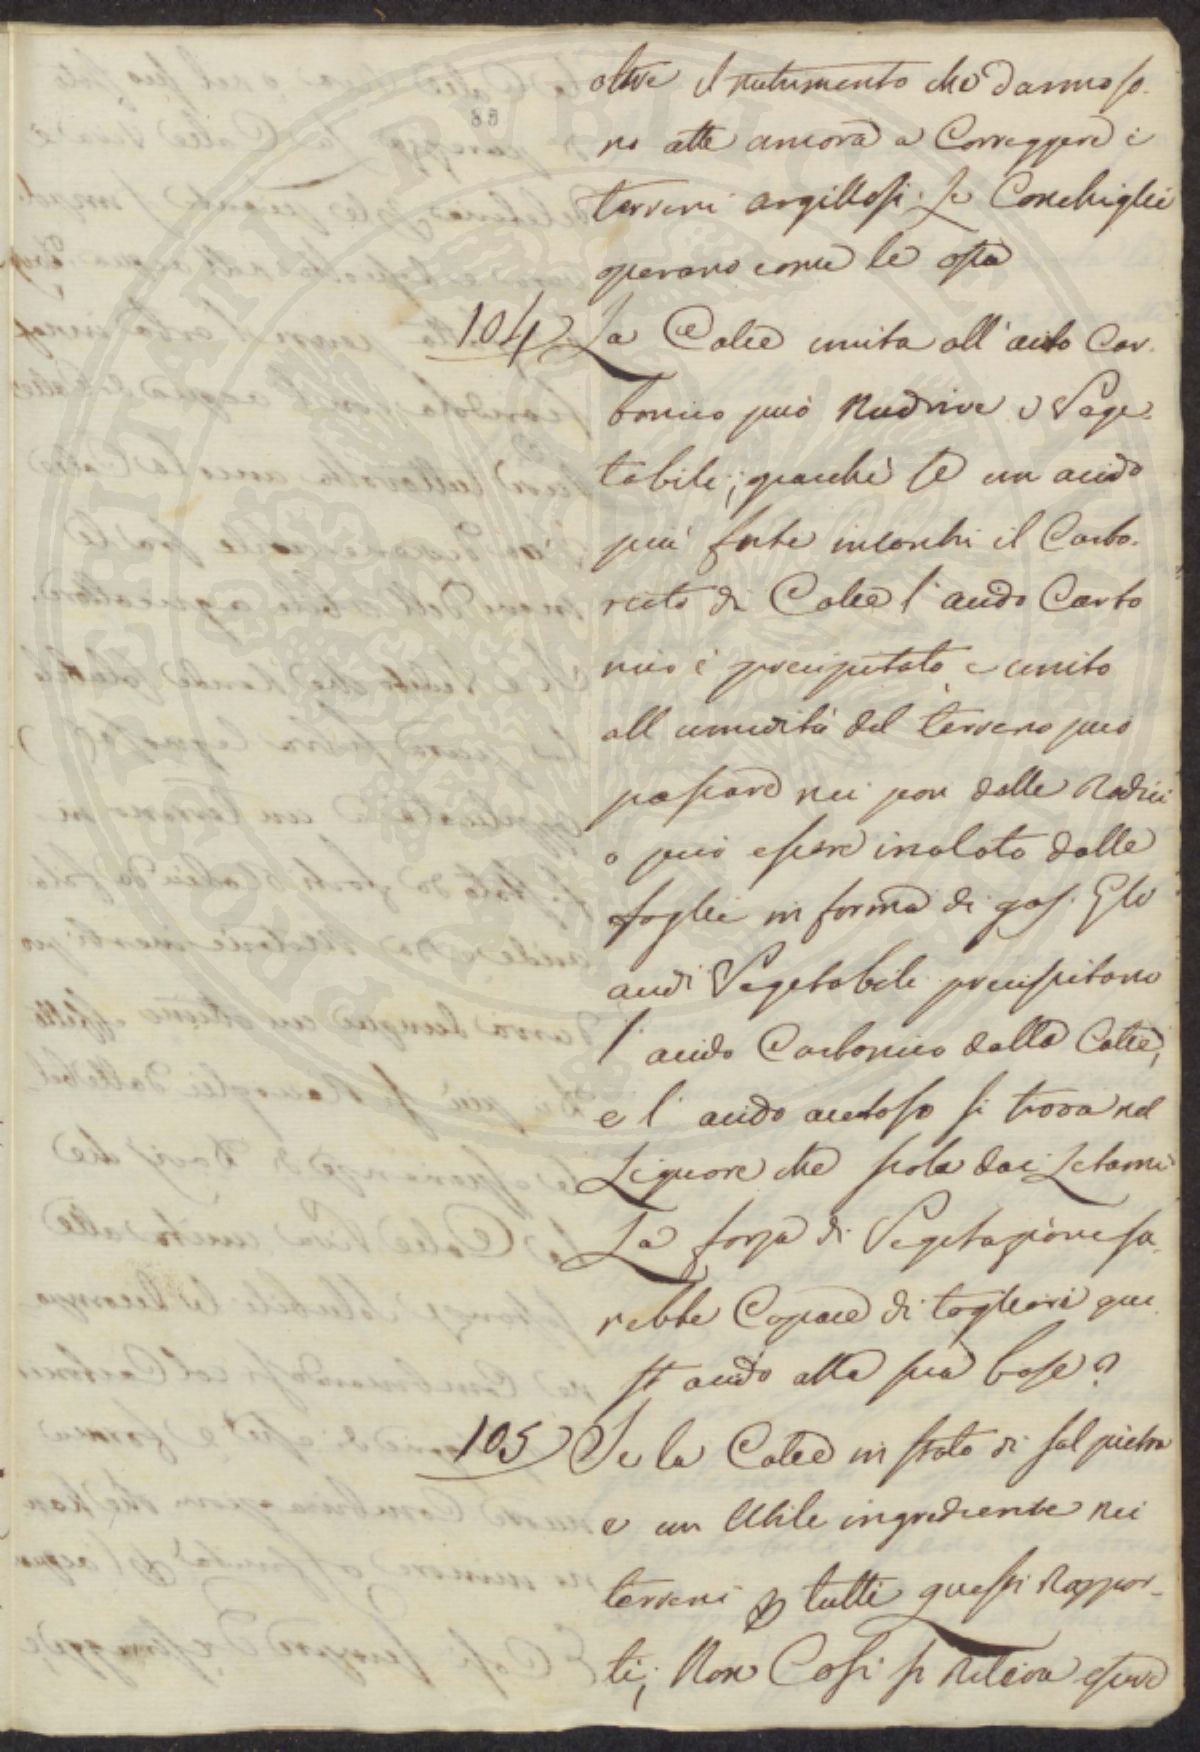 oltre il nutrimento che danno so-
no atte ancora a Correggere i
terreni argillosi. Le Conchiglie
operano come le ossa
104 La Calce unita all'acido Car-
bonico può Nudrire i Vege-
tabili; giacchè se un acido
più forte incontri il Carbo-
nato di Calce l'acido Carbo
nico è precipitato, e unito
all umidità del terreno può
passare nei pori delle Radici
o può essere inalato dalle
foglie in forma di gas. Gli
acidi Vegetabili precipitano
l'acido Carbonico dalla Calce,
e l'acido acetoso si trova nel
Liquore che scola dai Letami
La forza di Vegetazione sa-
rebbe Capace di togliere que-
st acido alla sua base?
105 Se la Calce in stato di sal pietra
e un Utile ingrediente nei
terreni p tutti questi Rappor-
ti; Non Cosi si Ritiova essere